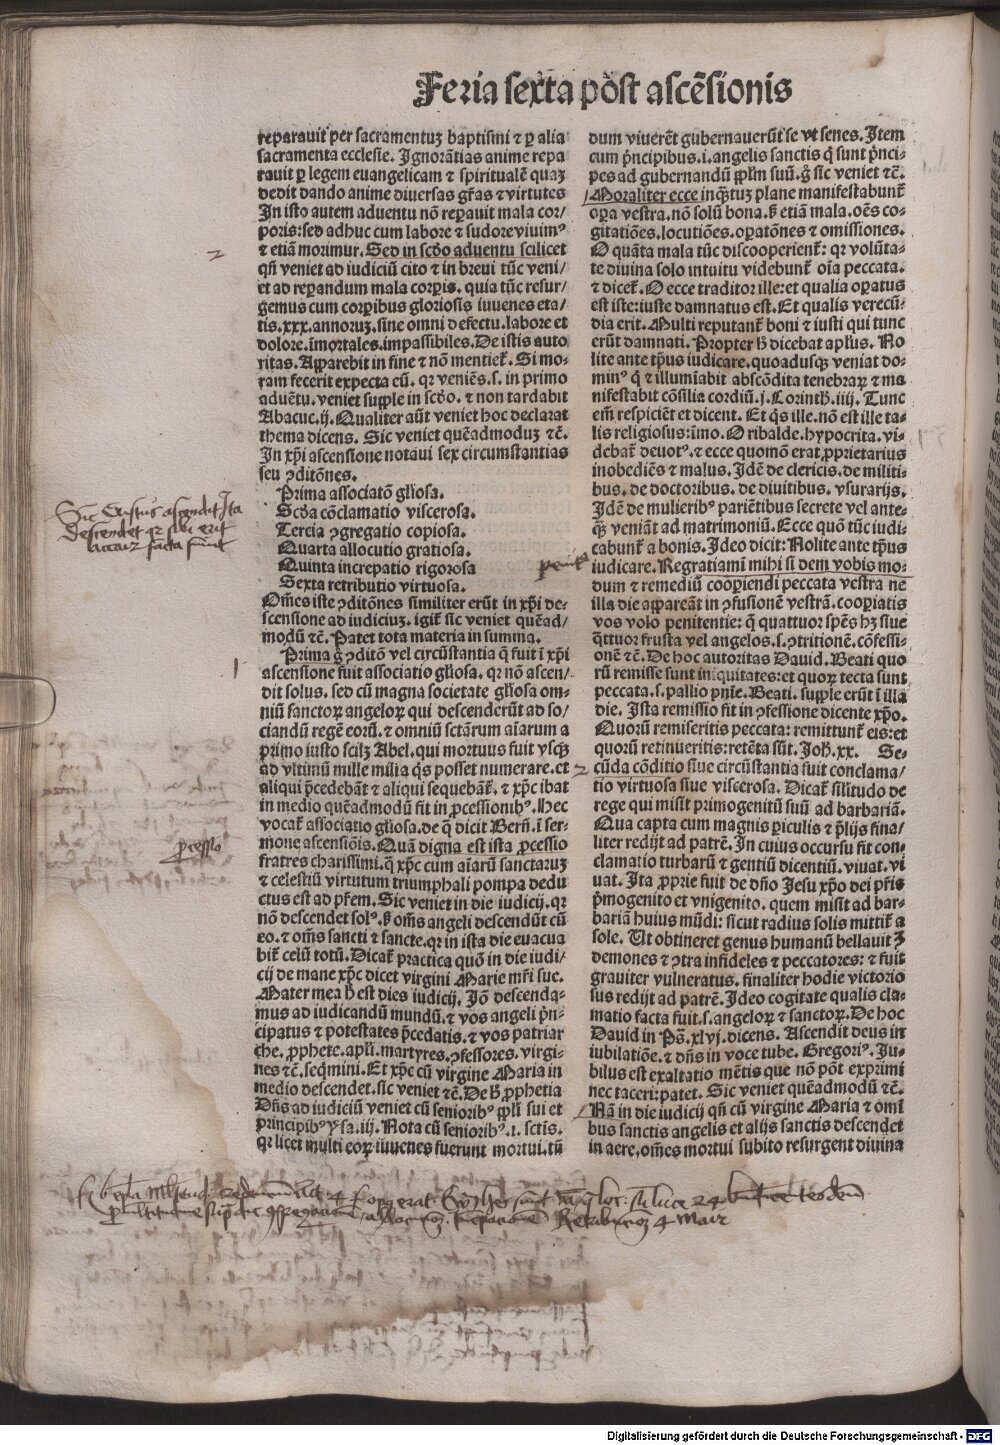 Feria sexta post ascēsionis
reparauit per sacramentuꝫ baptismi ⁊ ꝑ alia
sacramenta ecclesie. Ignorātias anime repa
rauit ꝑ legem euangelicam ⁊ spiritualē quaꝫ
dedit dando anime diuersas gr̄as ⁊ virtutes
In isto autem aduentu nō reꝑauit mala cor/
poris: sed adhuc cum labore ⁊ sudore viuimꝰ
⁊ etiā morimur. Sed in scd̄o aduentu scilicet
qn̄ veniet ad iudiciū cito ⁊ in breui tūc veni/
et ad reꝑandum mala corꝑis. quia tūc resur/
gemus cum corꝑibus gloriosis iuuenes eta/
tis .xxx. annoruꝫ. sine omni defectu. labore et
dolore. īmortales. impassibiles. De istis auto
ritas. Apparebit in fine ⁊ nō mentiet̄. Si mo/
ram fecerit expecta eū. qꝛ veniēs .s. in primo
aduētu. veniet supple in scd̄o. ⁊ non tardabit
Abacuc .ij. Qualiter aūt veniet hoc declarat
thema dicens. Sic veniet quēadmoduꝫ ⁊c̄.
In xp̄i ascensione notaui sex circumstantias
seu ꝯditōnes.
Prima associatō gl̄iosa.
Scd̄a cōclamatio viscerosa.
Tercia ꝯgregatio copiosa.
Quarta allocutio gratiosa.
Quinta increpatio rigorosa
Sexta retributio virtuosa.
Om̄es iste ꝯditōnes similiter erūt in xp̄i de-
scensione ad iudiciuꝫ. igit̄ sic veniet quēad/
modū ⁊c̄. Patet tota materia in summa.
Prima g̊ ꝯditō vel circūstantia q̄ fuit ī xp̄i
ascensione fuit associatio gl̄iosa. qꝛ nō ascen/
dit solus. sed cū magna societate gl̄iosa om-
niū sanctoꝝ angeloꝝ qui descenderūt ad so/
ciandū regē eorū. ⁊ omniū sctārum aīarum a
primo iusto scilꝫ Abel. qui mortuus fuit vsqꝫ
ad vltimū mille milia q̄s posset numerare. et
aliqui p̄cedebāt ⁊ aliqui sequebāt̄. ⁊ xp̄c ibat
in medio quēadmodū fit in ꝓcessionibꝰ. Hec
vocat̄ associatio gl̄iosa. de q̄ dicit Bern̄. ī ser-
mone ascensiōis. Quā digna est ista ꝓcessio
fratres charissimi. q̄ xp̄c cum aīarū sanctaruꝫ
⁊ celestiū virtutum triumphali pompa dedu
ctus est ad pr̄em. Sic veniet in die iudicij. qꝛ
nō descendet solꝰ. s̄ om̄s angeli descendūt cū
eo. ⁊ om̄s sancti ⁊ sancte. qꝛ in ista die euacua
bit̄ celū totū. Dicat̄ practica quō in die iudi/
cij de mane xp̄c dicet virgini Marie mr̄i sue.
Mater mea h̄ est dies iudicij. Iō descenda-
mus ad iudicandū mundū. ⁊ vos angeli p̄n-
cipatus ⁊ potestates p̄cedatis. ⁊ vos patriar
che. ꝓphete. apl̄i. martyres. ꝯfessores. virgi-
nes ⁊c̄. seq̄mini. Et xp̄c cū virgine Maria in
medio descendet. sic veniet ⁊c̄. De h̄ ꝓphetia
Dn̄s ad iudiciū veniet cū senioribꝰ ppl̄i sui et
principibꝰ ysa. iij. Nota cū senioribꝰ .i. sctis.
qꝛ licet multi eoꝝ iuuenes fuerunt mortui. tū
dum viuerēt gubernauerūt se vt senes. Item
cum p̄ncipibus .i. angelis sanctis q̄ sunt p̄nci-
pes ad gubernandū ppl̄m suū. g̊ sic veniet ⁊c̄.
Moraliter ecce inq̄tuꝫ plane manifestabunt̄
oꝑa vestra. nō solū bona. s̄ etiā mala. oēs co-
gitatiōes. locutiōes. oꝑatōnes ⁊ omissiones.
O quāta mala tūc discooperient̄: qꝛ volūta-
te diuina solo intuitu videbunt̄ oīa peccata.
⁊ dicet̄. O ecce traditor ille: et qualia oꝑatus
est iste: iuste damnatus est. Et qualis verecū-
dia erit. Multi reputant̄ boni ⁊ iusti qui tunc
erūt damnati. Propter h̄ dicebat apl̄us. No
lite ante tp̄us iudicare. quoadusqꝫ veniat do-
minꝰ q̄ ⁊ illumīabit abscōdita tenebraꝝ ⁊ ma
nifestabit cōsilia cordiū. j. Corinth̄. iiij. Tunc
em̄ respiciēt et dicent. Et q̄s ille. nō est ille ta-
lis religiosus: īmo. O ribalde. hypocrita. vi-
debat̄ deuotꝰ. ⁊ ecce quomō erat ꝓprietarius
inobediēs ⁊ malus. Idē de clericis. de militi-
bus. de doctoribus. de diuitibus. vsurarijs.
Idē de mulieribꝰ pariētibus secrete vel ante-
q̄ꝫ veniāt ad matrimoniū. Ecce quō tūc iudi-
cabunt̄ a bonis. Ideo dicit: Nolite ante tp̄us
iudicare. Regratiamī mihi si dem vobis mo-
dum ⁊ remediū cooꝑiendi peccata vestra ne
illa die appareāt in ꝯfusionē vestrā. cooꝑiatis
vos volo penitentie: q̄ quattuor spēs hꝫ siue
q̄ttuor frusta vel angelos .s. ꝯtritionē. cōfessi-
onē ⁊c̄. De hoc autoritas Dauid. Beati quo
rū remisse sunt iniquitates: et quoꝝ tecta sunt
peccata .s. pallio pn̄ie. Beati. supple erūt ī illa
die. Ista remissio fit in ꝯfessione dicente xp̄o.
Quorū remiseritis peccata: remittunt̄ eis: et
quorū retinueritis: retēta sūt. Joh̄. xx. Se-
cūda cōditio siue circūstantia fuit conclama/
tio virtuosa siue viscerosa. Dicat̄ silitudo de
rege qui misit primogenitū suū ad barbariā.
Qua capta cum magnis ꝑiculis ⁊ p̄lijs fina/
liter redijt ad patrē. In cuius occursu fit con-
clamatio turbarū ⁊ gentiū dicentiū. viuat. vi
uat. Ita ꝓprie fuit de dn̄o Jesu xp̄o dei pr̄is
p̄mogenito et vnigenito. quem misit ad bar-
bariā huius mūdi: sicut radius solis mittit̄ a
sole. Ut obtineret genus humanū bellauit ꝫ
demones ⁊ ꝯtra infideles ⁊ peccatores: ⁊ fuit
grauiter vulneratus. finaliter hodie victorio
sus redijt ad patrē. Ideo cogitate qualis cla-
matio facta fuit .s. angeloꝝ ⁊ sanctoꝝ. De hoc
Dauid in Ps̄. xlvj. dicens. Ascendit deus in
iubilatiōe. ⁊ dn̄s in voce tube. Gregoriꝰ. Ju-
bilus est exaltatio mētis que nō pōt exprimi
nec taceri: patet. Sic veniet quēadmodū ⁊c̄.
Nā in die iudicij qn̄ cū virgine Maria ⁊ omī
bus sanctis angelis et alijs sanctis descendet
in aere. om̄es mortui subito resurgent diuina
Sic Cristus ascendit Ita
descendet
facta sunt
1
2
2
Digitalisierung gefördert durch die Deutsche Forschungsgemeinschaft - DFG